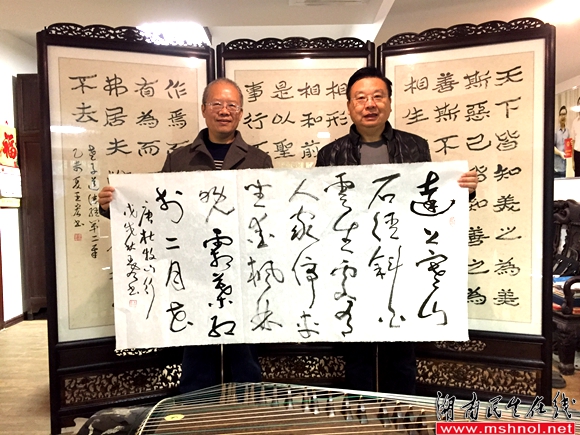 天下皆知美之為美
斯惡已皆知
善斯不
相生
相形
相和
是以聖
事行
作焉
有為而
弗居夫
不去
遠上寒山
石徑斜白
雲生處有
人家停車
坐愛楓林
晚霜葉紅
於二月花
唐杜牧山行
福
湖南民生在线
www.mshnol.net